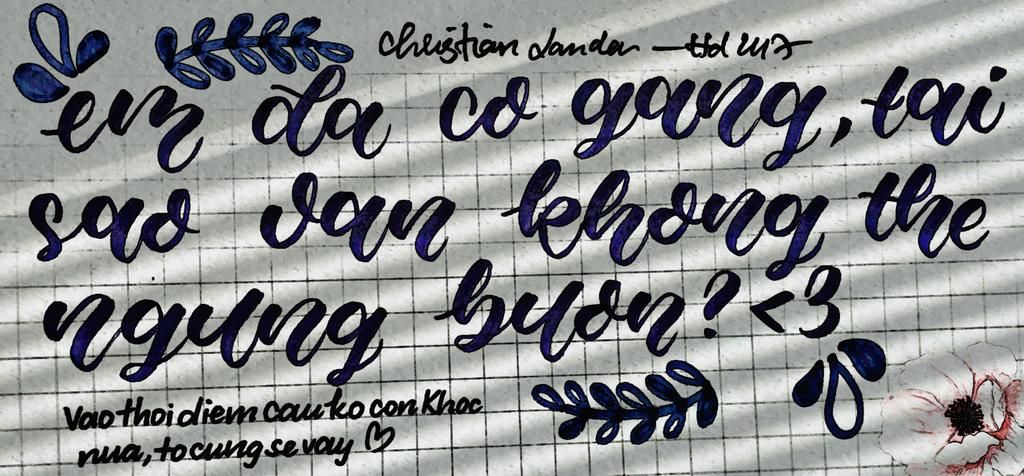 Christian Dandan — Hd 2417
em da co gang, tai
sao van khong the
ngung buon? <3
Vao thoi diem cau ko con khoc
nua, to cung se vay ♡